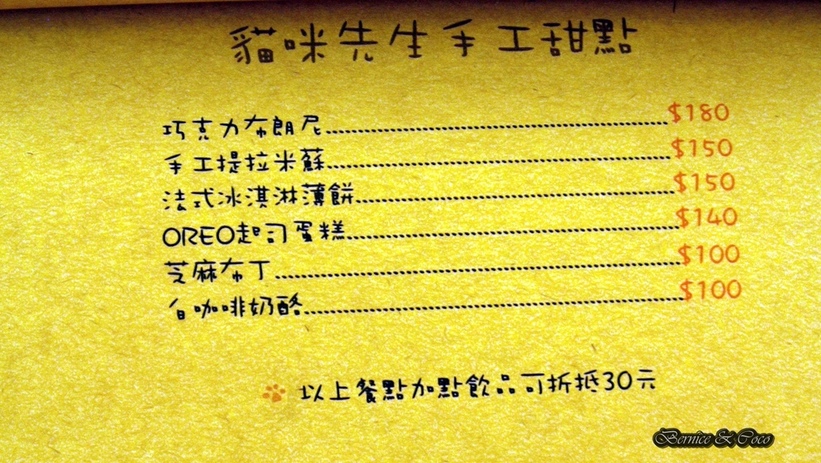 貓咪先生手工甜點
巧克力布朗尼 $180
手工提拉米蘇 $150
法式冰淇淋薄餅 $150
OREO起司蛋糕 $140
芝麻布丁 $100
白咖啡奶酪 $100
以上餐點加點飲品可折抵30元
Bernice & Coco